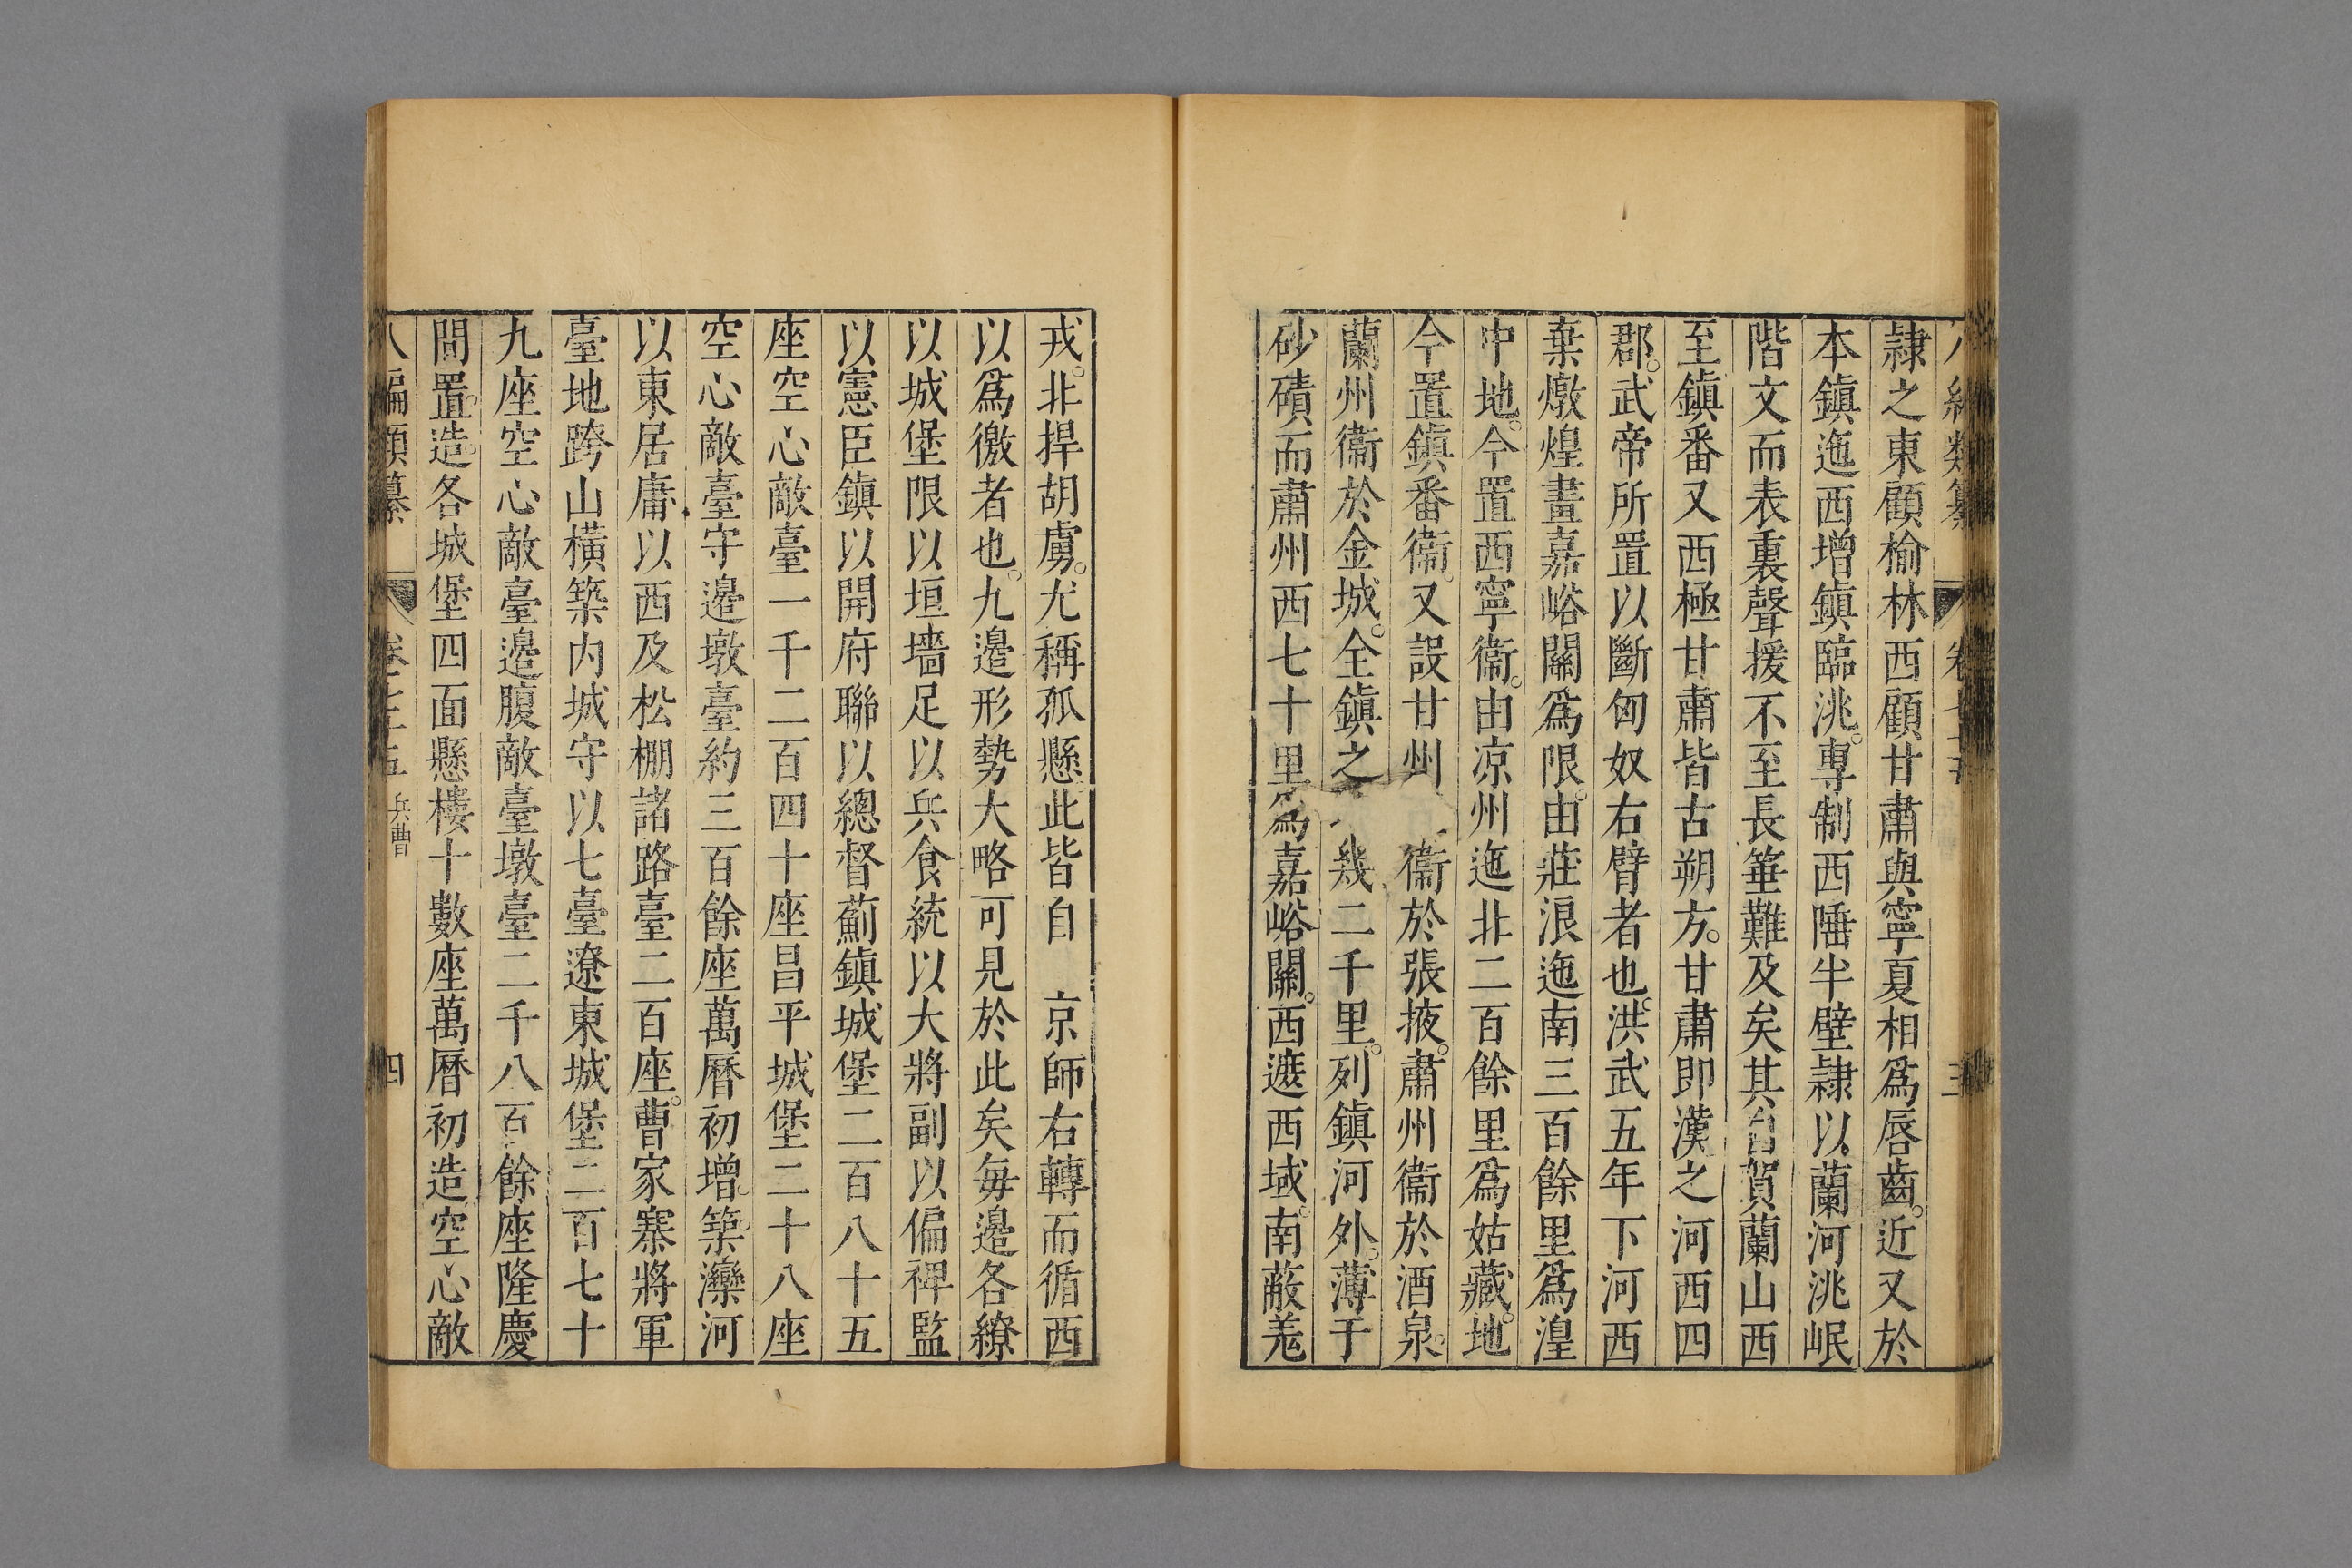 隷之東顧榆林西顧甘肅與寧夏相爲唇齒。近又於
本鎮迤西增鎮臨洮。專制西陲半壁隷以蘭河洮岷
階文而表裏聲援不至長箠難及矣其賀蘭山西
至鎮番又西極甘肅皆古朔方。甘肅即漢之河西四
郡。武帝所置以斷匈奴右臂者也。洪武五年下河西
棄燉煌畫嘉峪關爲限。由莊浪迤南三百餘里爲湟
中地。今置西寧衞。由凉州迤北二百餘里爲姑藏。地
今置鎮番衞。又設甘州衞於張掖。肅州衞於酒泉。
蘭州衞於金城。全鎮之幾二千里。列鎮河外。薄于
砂磧而肅州西七十里爲嘉峪關。西遮西域。南蔽羗
戎。北捍胡虜。尤稱孤懸此皆自　京師右轉而循西
以爲徼者也。九邊形勢大略可見於此矣每邊各繚
以城堡限以垣墻足以兵食統以大將副以偏裨監
以憲臣鎮以開府聯以總督薊鎮城堡二百八十五
座空心敵臺一千二百四十座昌平城堡二十八座
空心敵臺守邊墩臺約三百餘座萬曆初增。築。灤河
以東居庸以西及松棚諸路臺二百座。曹家寨將軍
臺地跨山橫築内城守以七臺遼東城堡二百七十
九座空心敵臺邊腹敵臺墩臺二千八百餘座隆慶
間置。造。各城堡四面懸樓十數座萬曆初造空心敵
八編類纂　卷七十五　兵曹　四